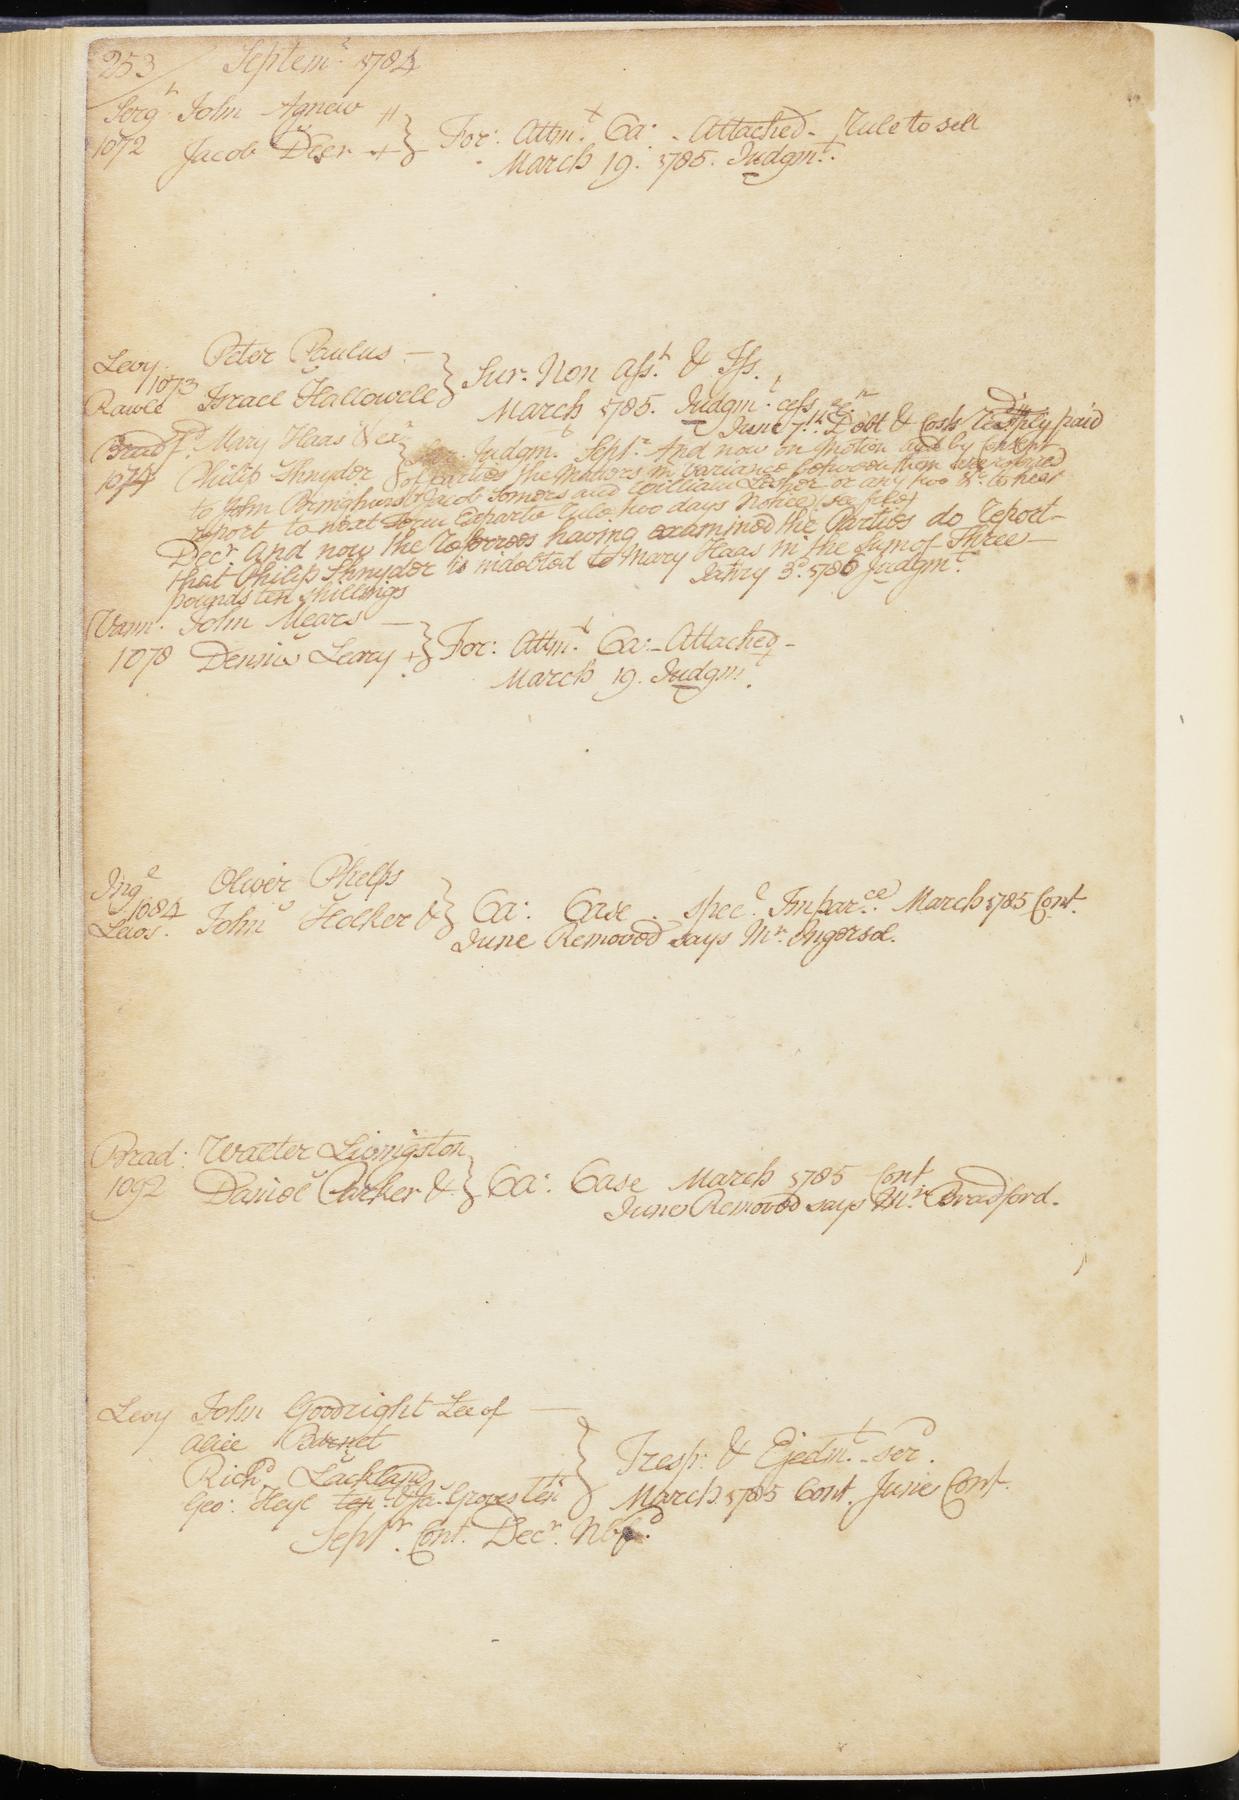 253 Septemr 1784
Sergt John Agnew
1072 Jacob Deer } For: Attmt Ca: - Attached - Rule to sell
March 19. 1785. Judgmt.
Levy Peter Paulus —
1073
Rawle Israel Hallowell } Sur. Non Asst & Iss.
March 1785. Judgmt.
June 7th Debt & Costs paid
Bradfd Mary Haas
1074 Philip Shnyder } Judgmt Septr And now on Motion and by Consent
of parties the Matters in Variance between them
to John Bringhurst Jacob Somers and William or any two &c to hear
report to next Term Exparte Rule two days Notice (see file)
Decr And now the Referrees having examined the Parties do Report
that Philip Shnyder is indebted to Mary Haas in the Sum of Three
pounds ten shillings Janry 3d. 1786 Judgmt
Vann. John Mears —
1078 Dennis Leary } For: Attmt Ca: - Attached -
March 19. Judgm.
Ingl Oliver Phelps
1084
Lewis. John Holker & } Ca: Case. specl Imparce March 1785 Cont.
June Removed says Mr. Ingersol.
Brad: Walter Livingston
1092 Daniel Parker & } Ca: Case March 1785 Cont
June Removed says Mr. Bradford.
Levy John Goodright Lee of —
Alice Barnet
Richd Lackland } Tresps. & Ejedmt. - serd.
Geo: Heyl ten. & Ja: Groves ten March 1785 Cont. June Cont.
Septr. Cont. Decr.